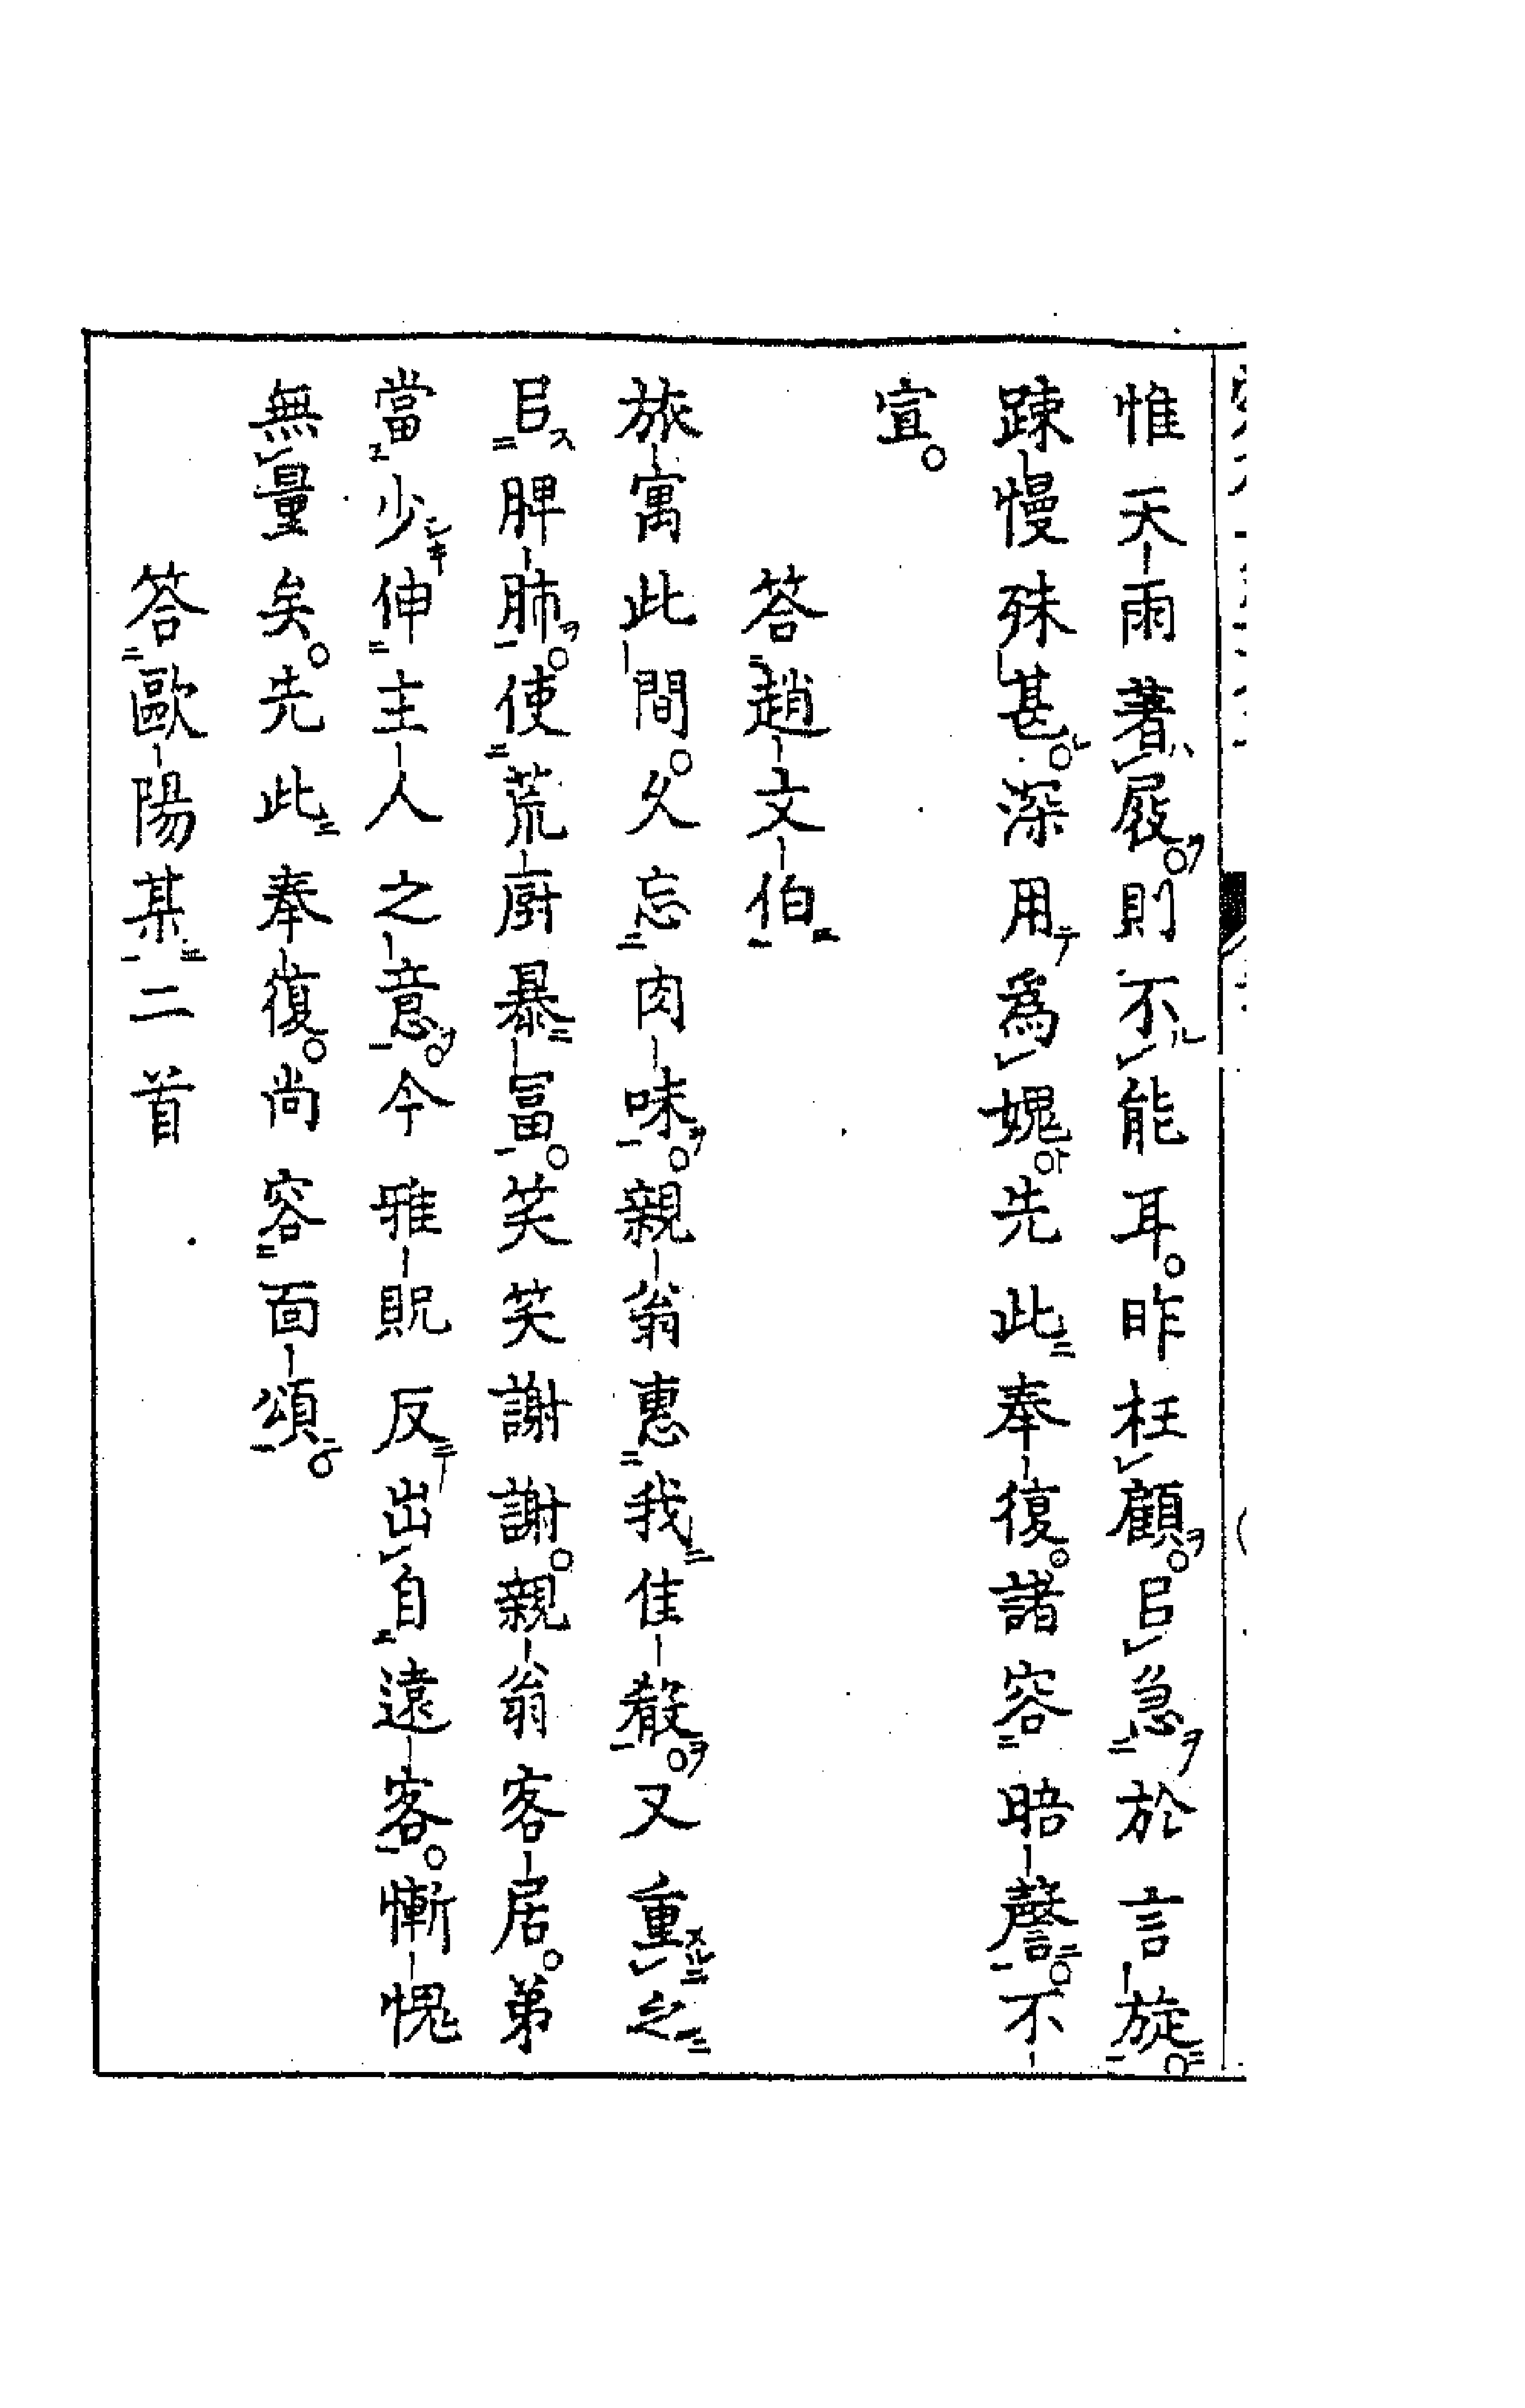 惟天雨著屐。則不能耳。昨枉顧。㠯急於言旋。
踈慢殊甚。深用爲媿。先此奉復。諸容晤謦。不
宣。
答趙文伯
旅寓此間。久忘肉味。親翁惠我佳殽。又重之
㠯脾肺。使荒厨暴富。笑笑謝謝。親翁客居。弟
當少伸主人之意。今雅貺反出自遠客。慚愧
無量矣。先此奉復。尚容面頌。
答歐陽某二首